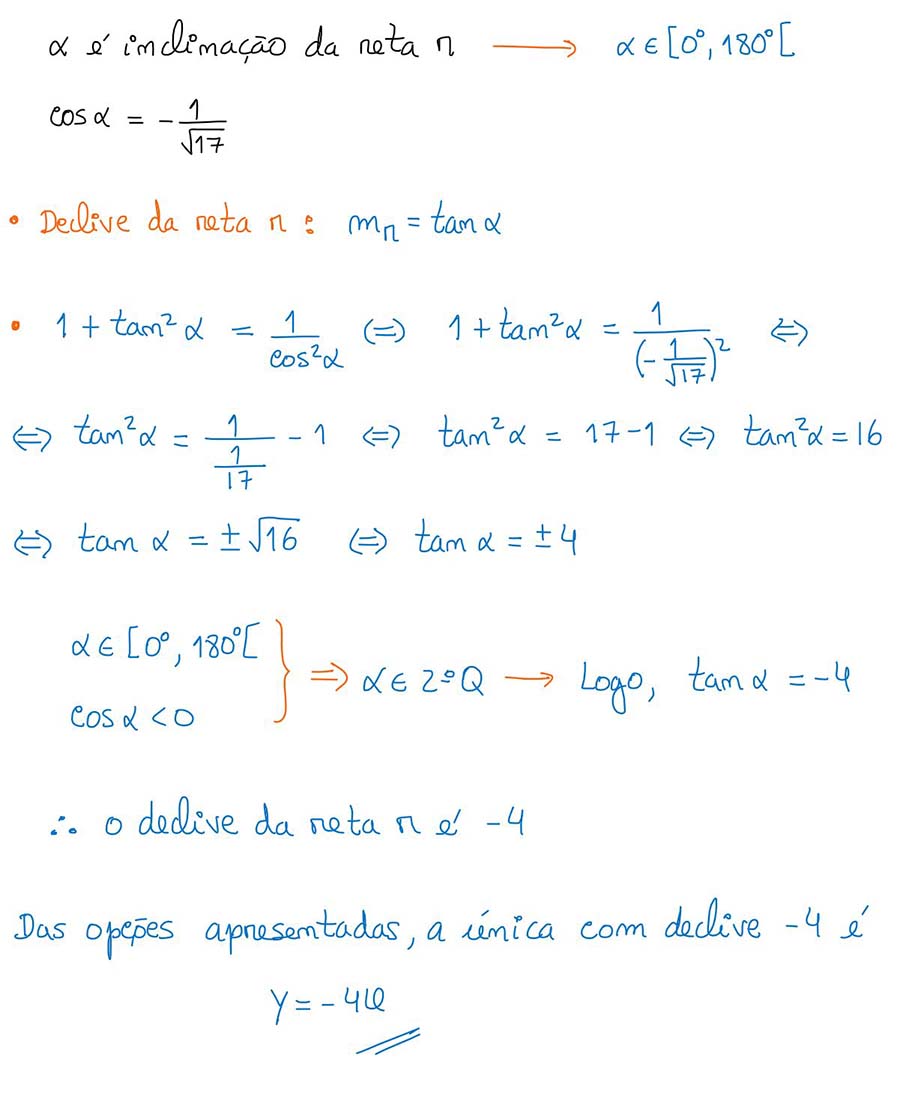 α é inclinação da reta r ⟶ α ∈ [0°, 180°[
cos α = - 1/√17
• Declive da reta r : m_r = tan α
• 1 + tan² α = 1/cos²α (=) 1 + tan²α = 1/(-1/√17)² ⇔
⇔ tan²α = 1/(1/17) - 1 ⇔ tan²α = 17 - 1 ⇔ tan²α = 16
⇔ tan α = ±√16 ⇔ tan α = ± 4
α ∈ [0°, 180°[
cos α < 0 } ⇒ α ∈ 2ºQ ⟶ Logo, tan α = -4
∴ o declive da reta r é -4
Das opções apresentadas, a única com declive -4 é
y = -4x